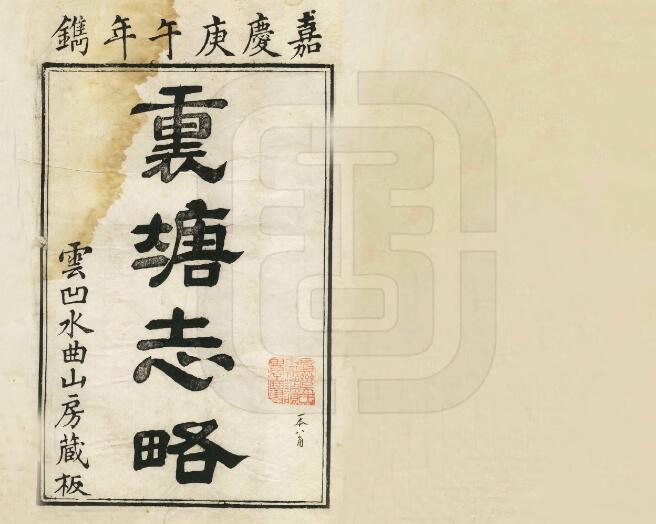 嘉慶庚午年鐫
裏塘志略
雲凹水曲山房藏板
一本八角